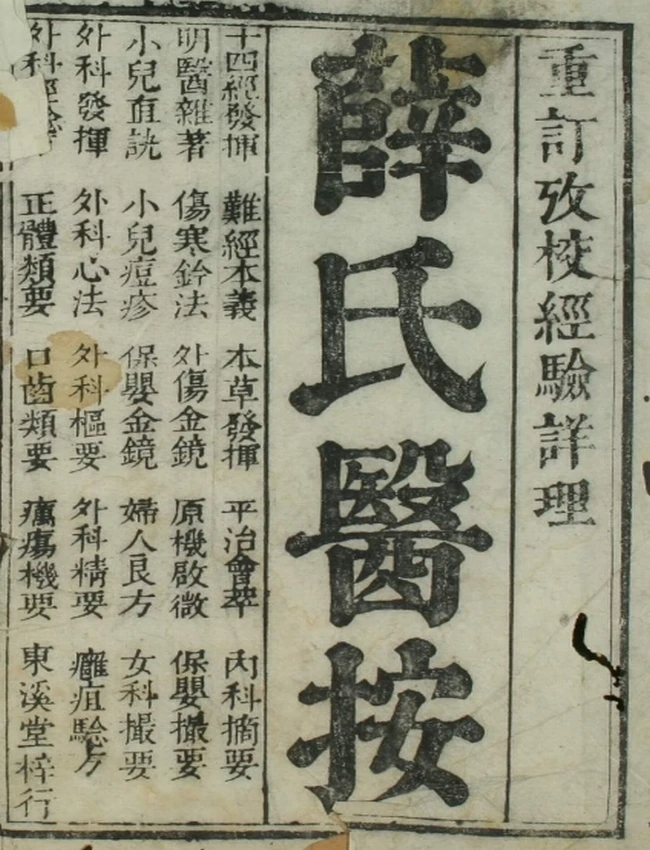 重訂攷校經驗詳理
薛氏醫按
十四經發揮 難經本義 本草發揮 平治會萃 內科摘要
明醫雜著 傷寒鈐法 外傷金鏡 原機啟微 保嬰撮要
小兒直訣 小兒痘疹 保嬰金鏡 婦人良方 女科撮要
外科發揮 外科心法 外科樞要 外科精要 癰疽驗方
外科經 正體類要 口齒類要 癘瘍機要 東溪堂梓行